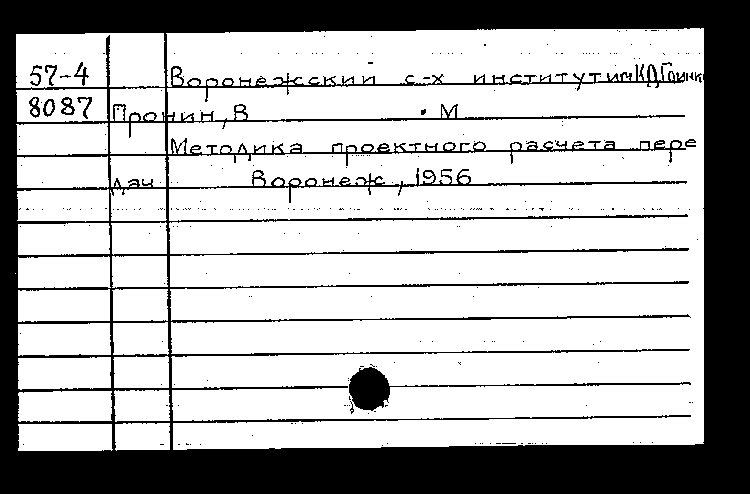 57-4 Воронежский с-х институт им К.Д. Глинки
8087 Пронин, В. М
Методика проектного расчета пере
дач Воронеж, 1956